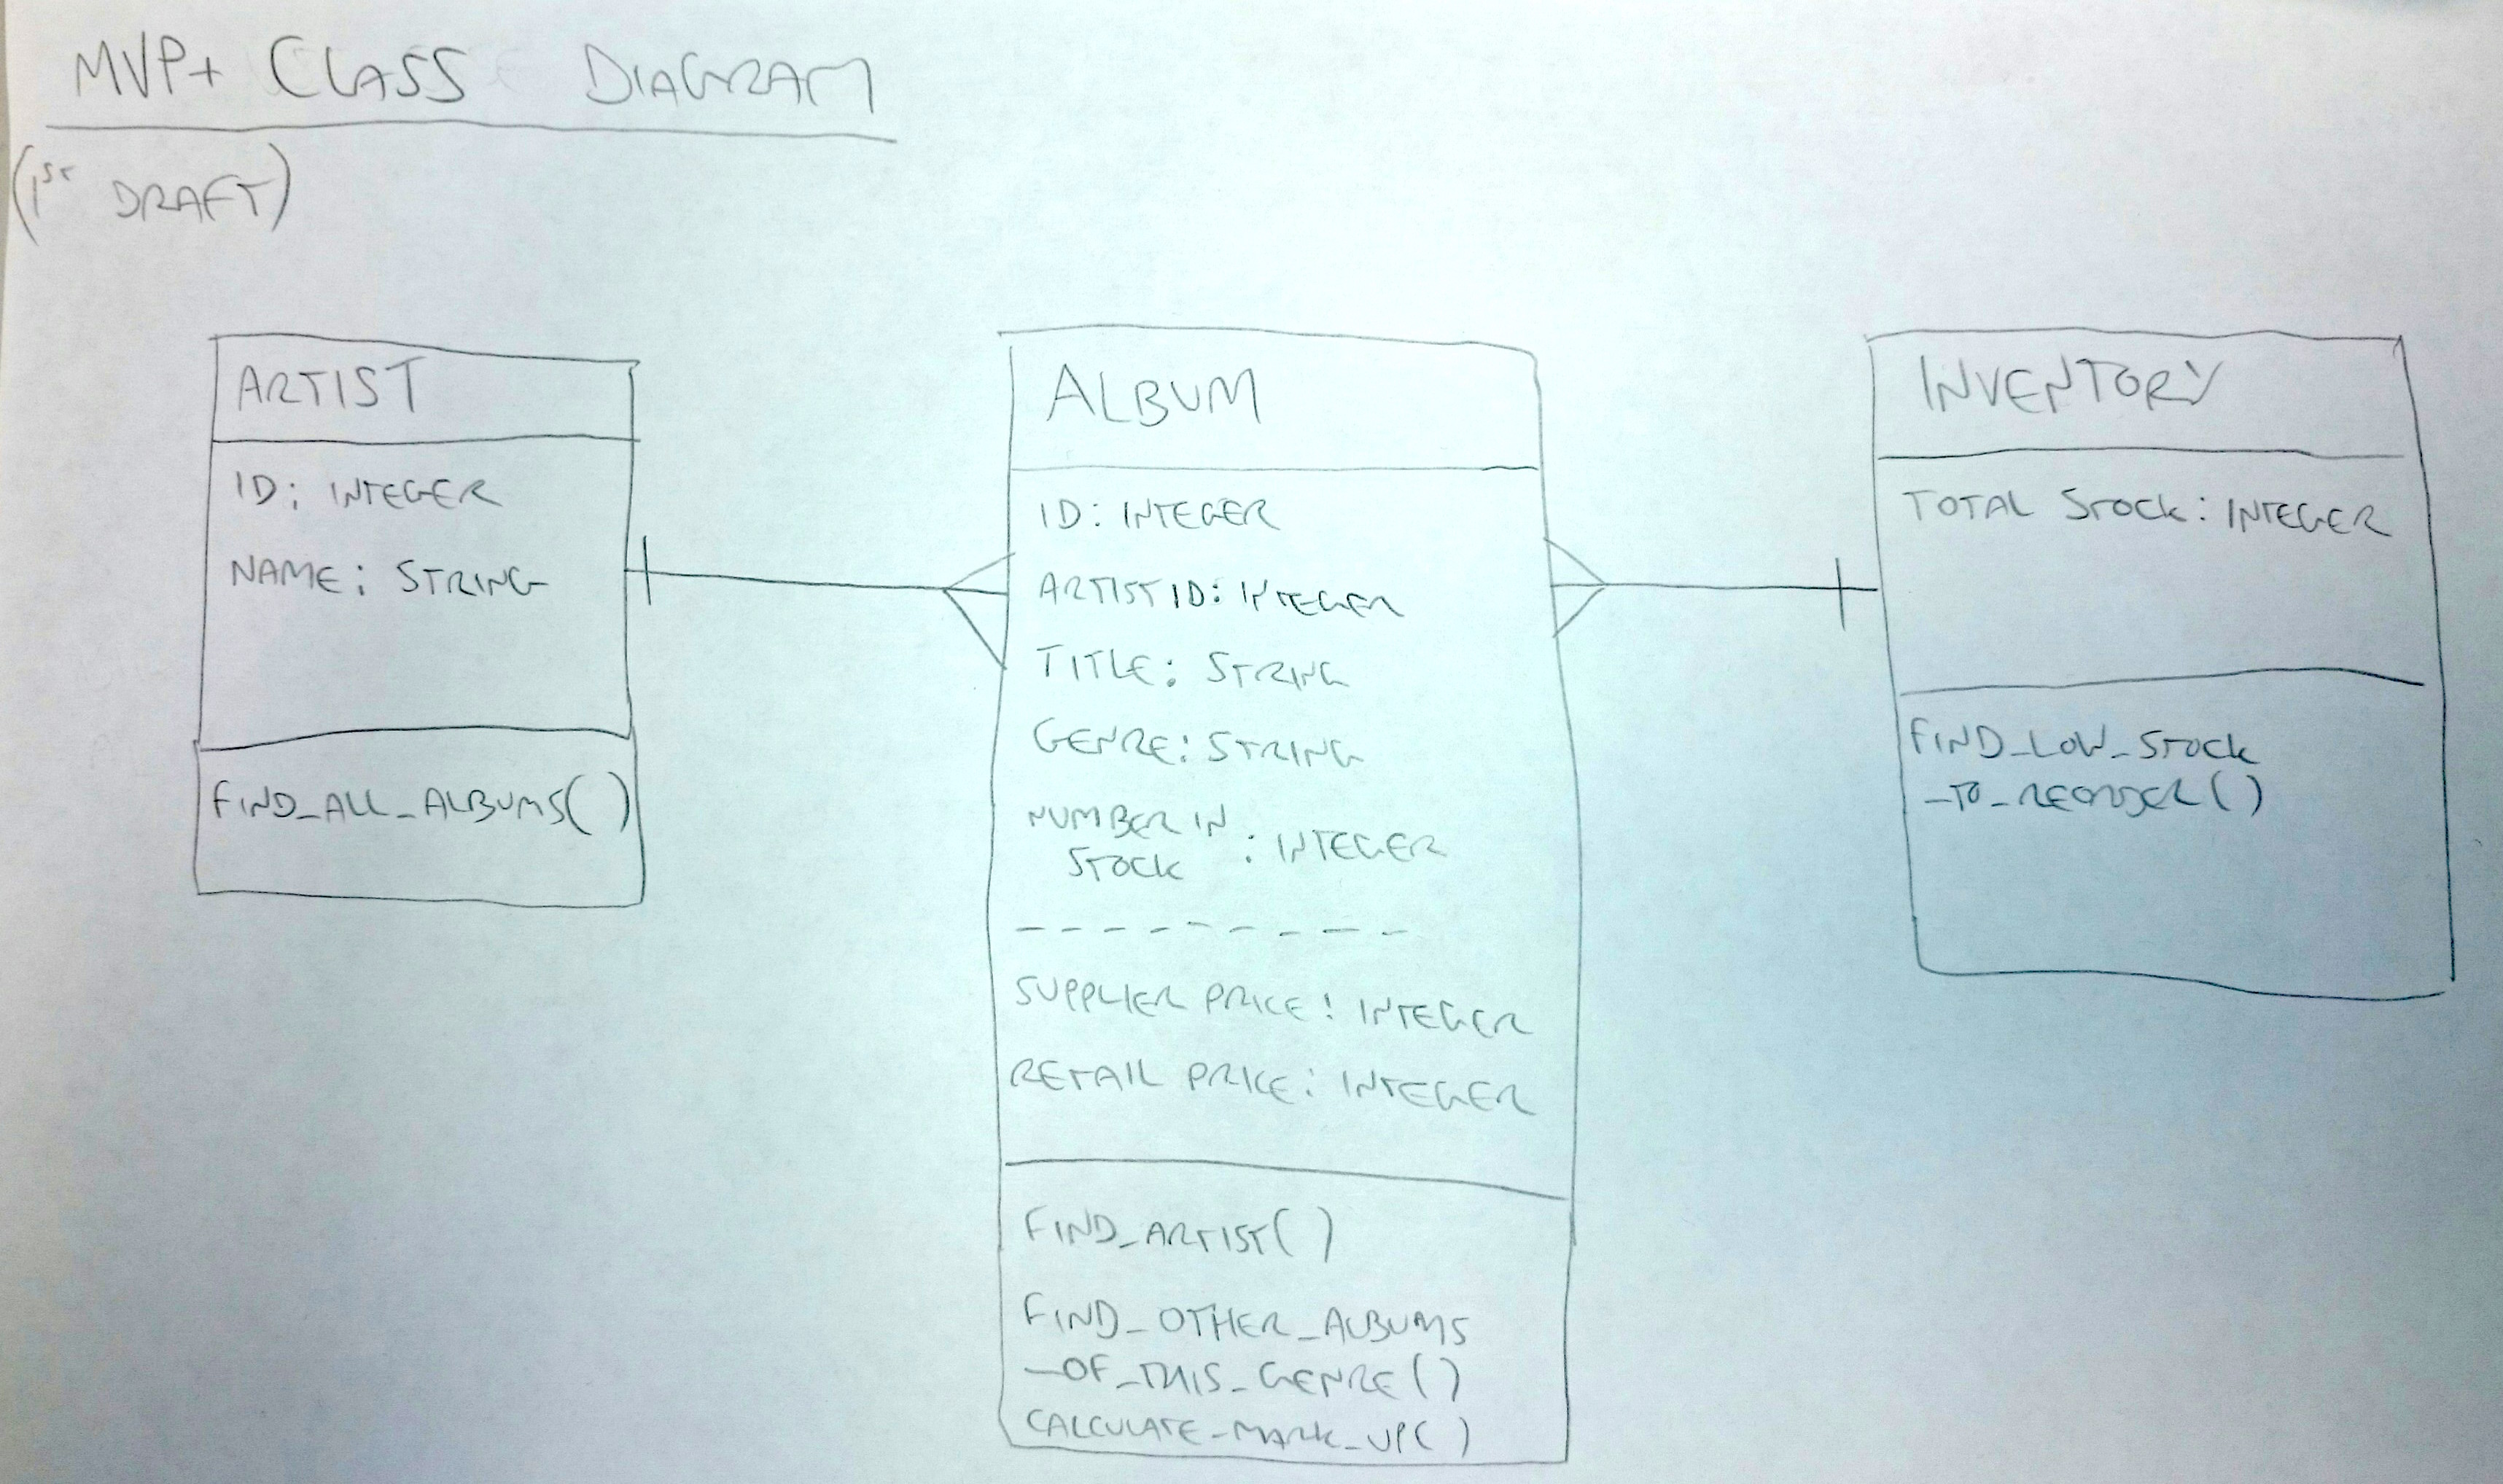 MVP+ CLASS DIAGRAM
(1ST DRAFT)
ARTIST
ID: INTEGER
NAME: STRING
FIND_ALL_ALBUMS()
ALBUM
ID: INTEGER
ARTIST ID: INTEGER
TITLE: STRING
GENRE: STRING
NUMBER IN
STOCK : INTEGER
SUPPLIER PRICE: INTEGER
RETAIL PRICE: INTEGER
FIND_ARTIST()
FIND_OTHER_ALBUMS
_OF_THIS_GENRE()
CALCULATE_MARK_UP()
INVENTORY
TOTAL STOCK: INTEGER
FIND_LOW_STOCK
_TO_REORDER()